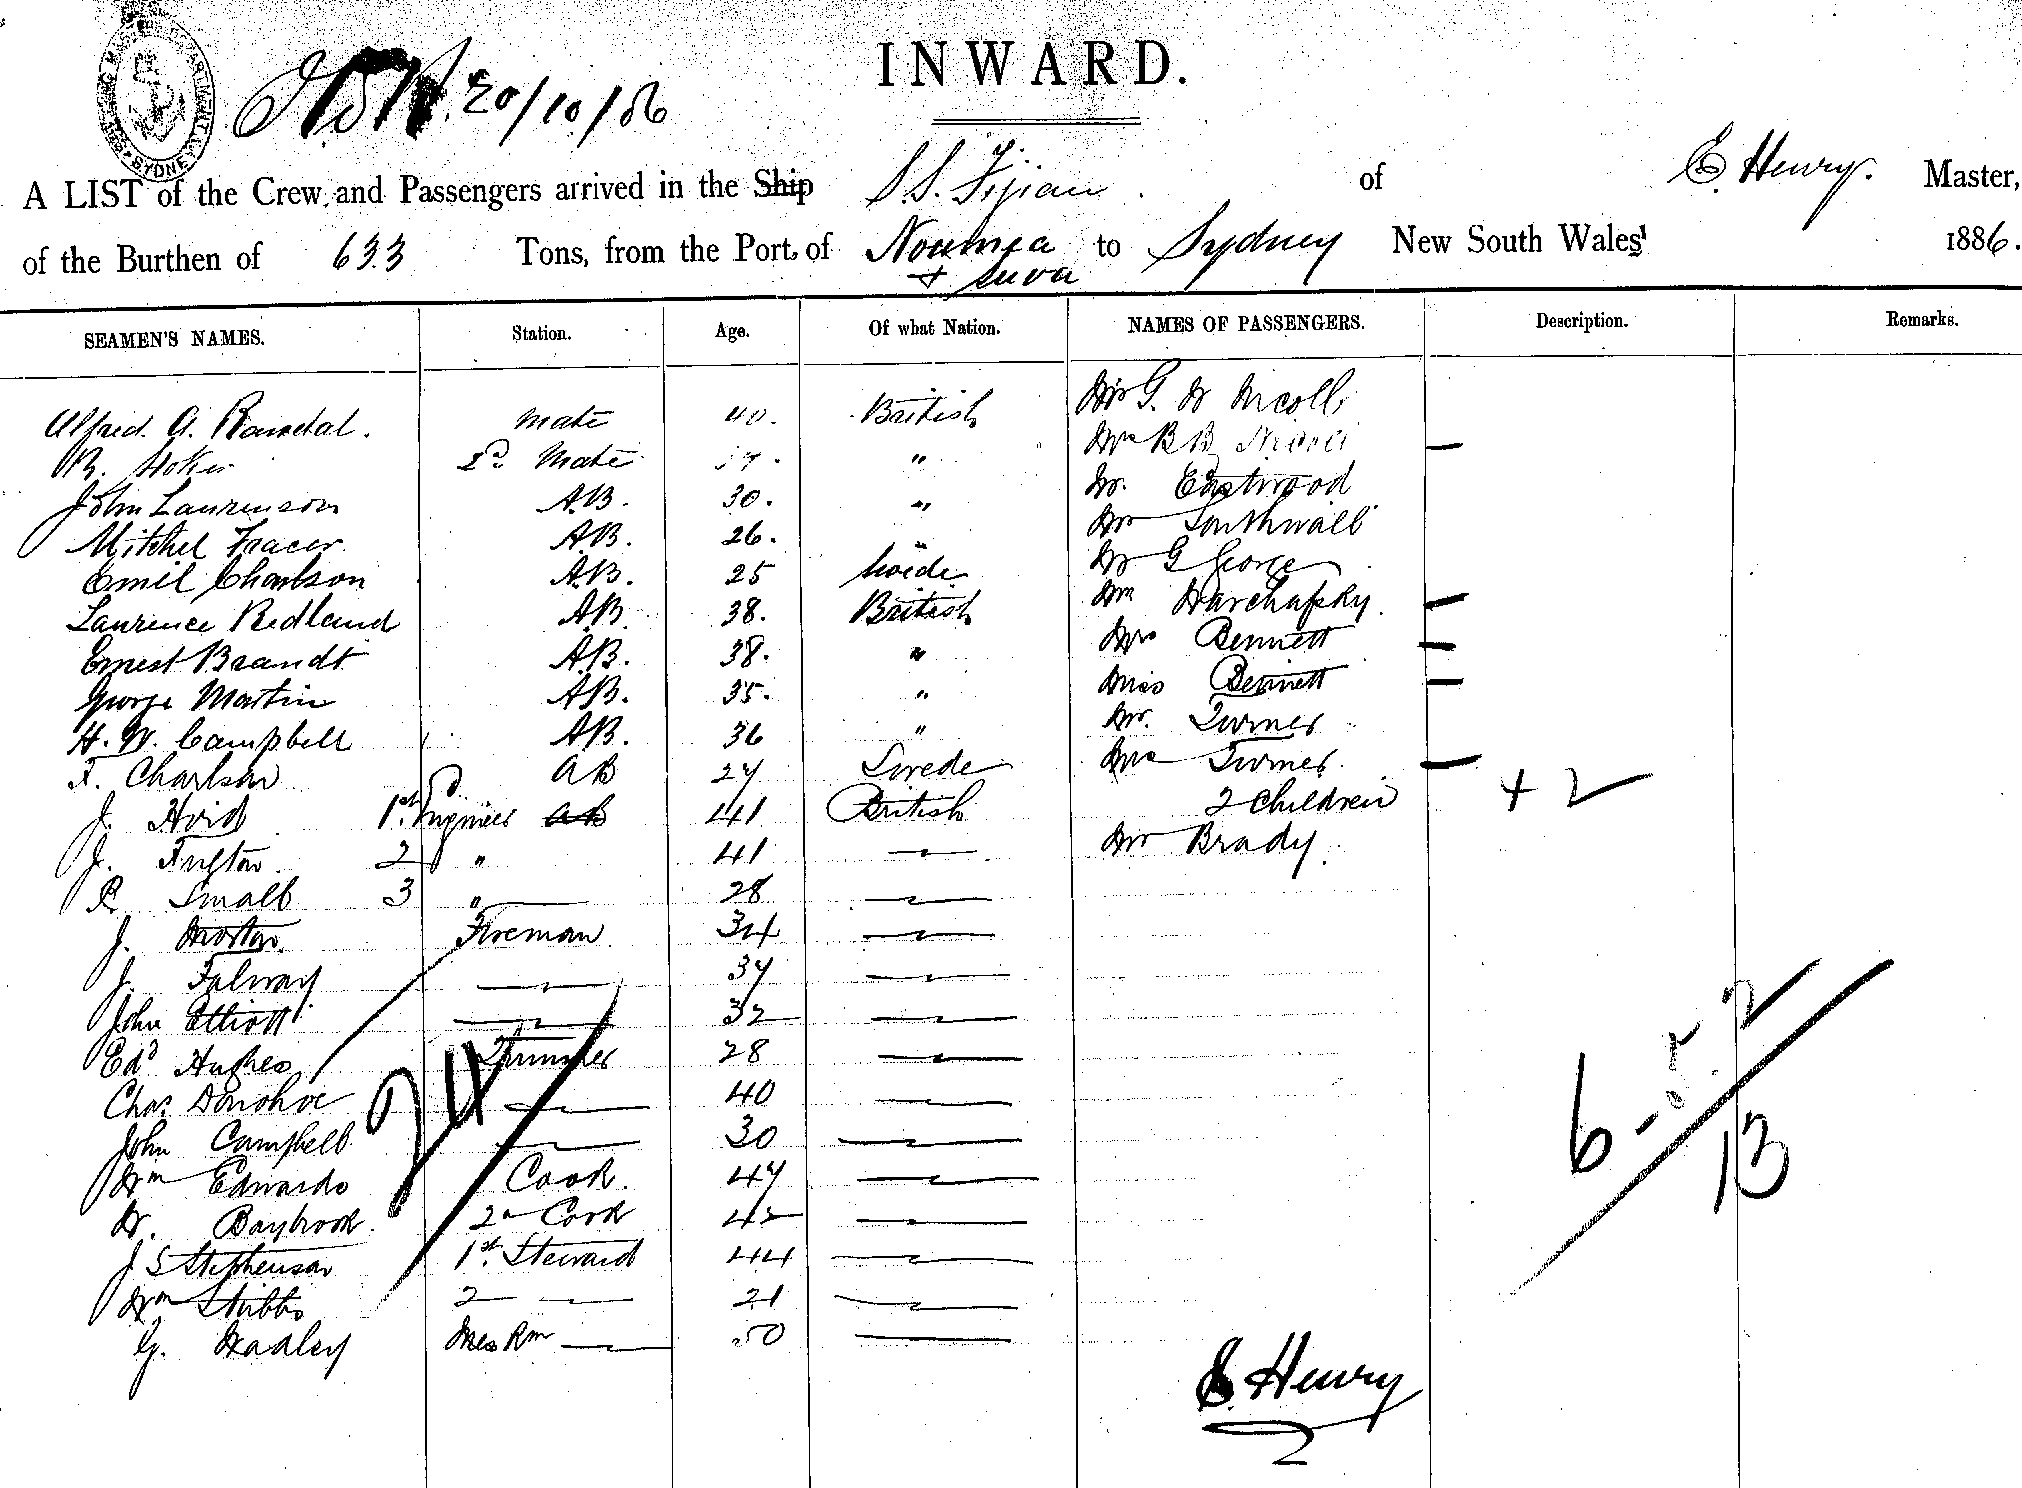 INWARD.
20/10/86
SYDNEY
A LIST of the Crew and Passengers arrived in the Ship S.S. Fijian of E. Henry. Master,
of the Burthen of 633 Tons, from the Port of Noumea & Suva to Sydney New South Wales 1886.
SEAMEN'S NAMES. Station. Age. Of what Nation. NAMES OF PASSENGERS. Description. Remarks.
Alfred. A. Mate 40. British Mr G. W Nicoll
R. 2d. Mate " Mrs B B
John Laurenson A.B. 30. " Mr. Eastwood
Mitchel Fracer A.B. 26. " Mr Southwall
Emil Charlson A.B. 25 Swede Mr G George
Laurence Redland A.B. 38. British
Ernest Brandt A.B. 38. " Mrs Bennett
George Martin A.B. 35. " Miss Bennett
H. W. Campbell A.B. 36 " Mr. Turner
F. Charlson AB 27 Swede Mrs Turner
J. 1st. Engineer AB 41 British 2 Children + 2
J. 2 " 41 Mr Brady
R. Small 3 " 28
J. Morton Fireman 34
J. Falway 37
John Elliott 32
Edd Hughes Trimmer 28
Chas Donohoe 40
John Campbell 30
Wm Edwards Cook. 47
W. Baybrook 2nd Cook 42
J S Stephenson 1st. Steward 44
Wm Stibbs 2 21
G. Hadley Mes Rm 50
24
6 - 5 - 2
13
E. Henry